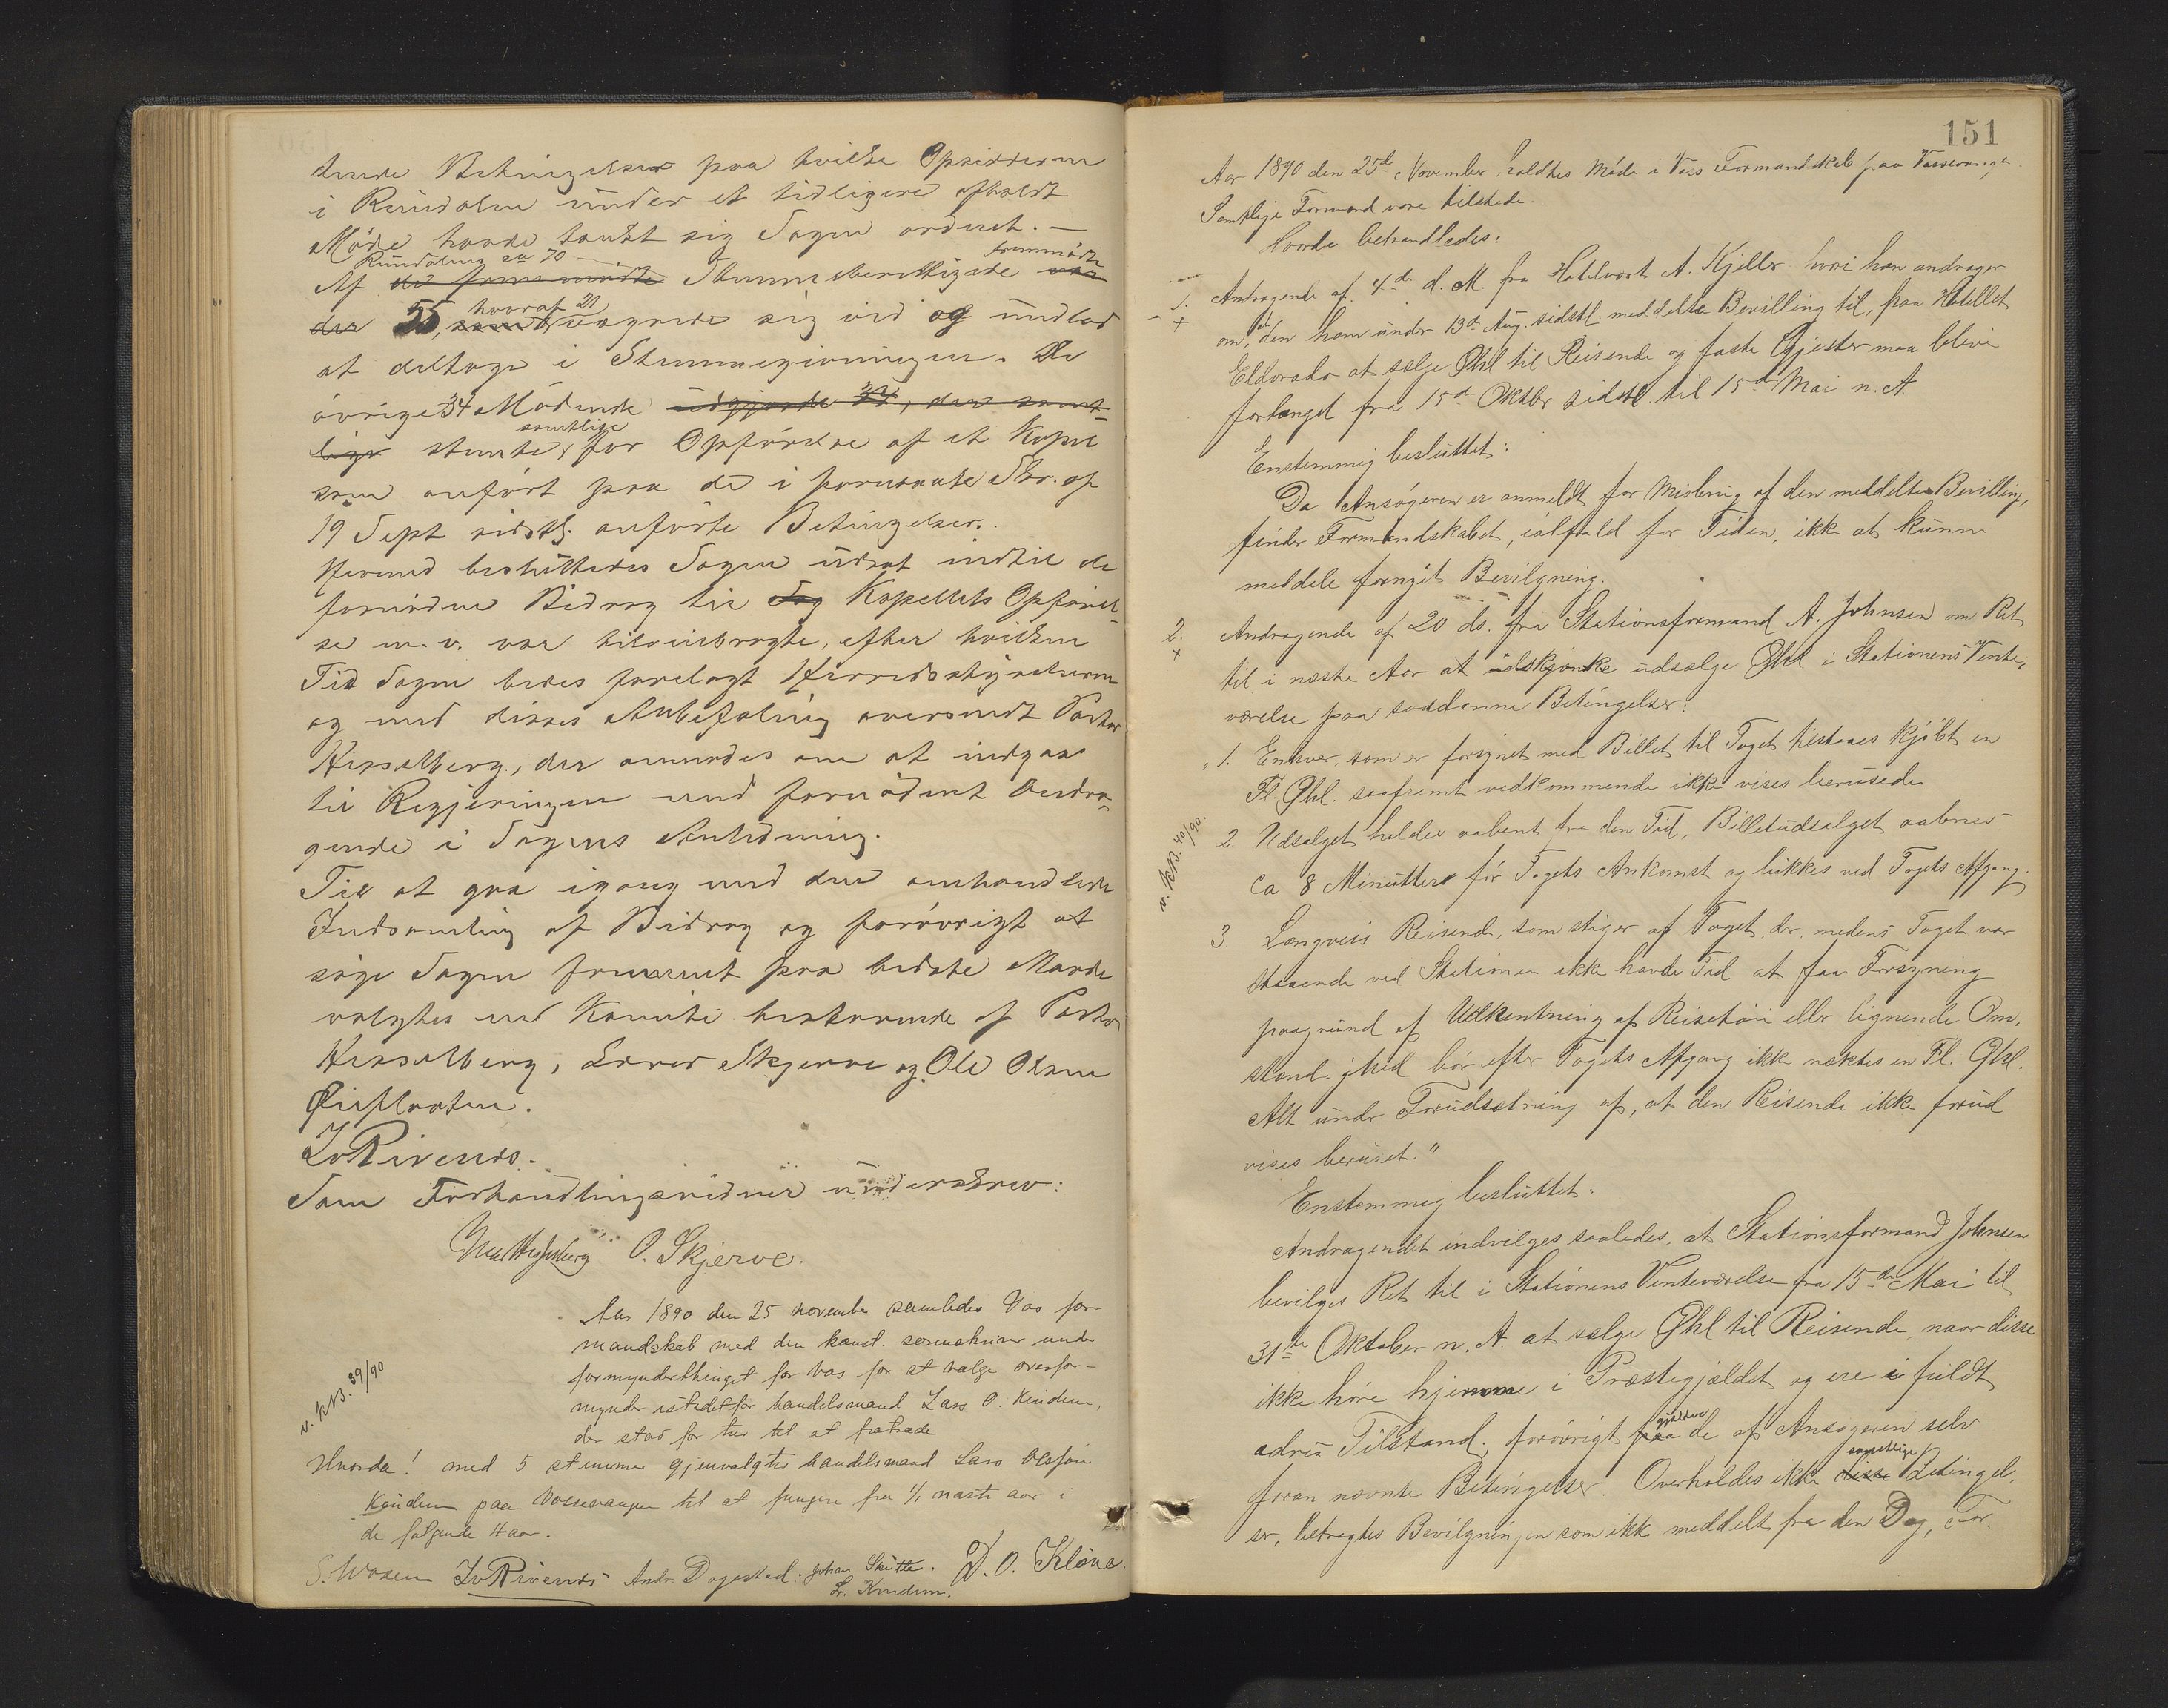 dende Betingelser paa hvilke Opsidderne
i Rundalen under et tidligere afholdt
Møde havde tænkt sig Sagen ordnet. —
Rundalens ca 70 fremmødte
Af de fremmødte Stemmeberettigede var
der 55, hvoraf 21 som vægrede sig ved og undlod
at deltage i Stemmegivningen. De
øvrige 34 Mødende udgjorde 34, der samt-
lige stemte samtlige for Opførelse af et Kapel
som anført paa de i fornævnte Skr. af
19 Sept sidstl. anførte Betingelser.
Herved besluttedes Sagen udsat indtil de
fornødne Bidrag til Sag Kapellets Opførel-
se m.v. var tilveiebragte, efter hvilken
Tid Sagen bedes forelagt Herredsstyrelsen
og med disses Anbefaling oversendt Pastor
Hesselberg, der anmodes om at indgaa
til Regjeringen med fornødent Andra-
gende i Sagens Anledning.
Til at gaa igang med den omhandlede
Indsamling af Bidrag og forøvrigt at
søge Sagen fremmet paa bedste Maade
valgtes en Komite bestaaende af Pastor
Hesselberg, Sjur Skjerve og Ole Olsen
Øvsthaaen.
L Rivenes.
Som Forhandlingsvidner underskrev:
Hesselberg O. Skjerve.
Aar 1890 den 25 november samledes Vos for-
mandskab med den konst. sorenskriver under
formynderthinget for Vos for at vælge overfor-
mynder istedetfor handelsmand Lars O. Kindem,
der stod for tur til at fratræde
v. KB. 39/90
Hvorda! med 5 stemmer gjenvalgtes handelsmand Lars Olsøn
Kindem paa Vossevangen til at fungere fra 1/1 næste aar i
de følgende 4 aar.
S. Wosen L Rivenes Andr. Dagestad. Johan Skutle. D. O. Kløve.
Lr. Kindem.
151
Aar 1890 den 25de November holdtes Møde i Vos Formandskab paa Vossevangen.
Samtlige Formænd vare tilstede.
Hvorda behandledes:
1. Andragende af 4de d. M. fra Hotelvært A. Kjeller hvori han andrager
+ om, at den ham under 13de Aug. sidstl. meddelte Bevilling til, paa Hotellet
Eldorado at sælge Øhl til Reisende og faste Gjester maa blive
forlænget fra 15de Oktbr sidstl til 15de Mai n. A.
Enstemmig besluttet:
Da Ansøgeren er anmeldt for Misbrug af den meddelte Bevilling,
finder Formandskabet, ialfald for Tiden, ikke at kunne
meddele fornyet Bevilgning.
2. Andragende af 20 ds. fra Stationsformand A. Johnsen om Ret
+ til i næste Aar at udskjænke udsælge Øhl i Stationens Vente-
værelse paa saadanne Betingelser:
"1. Enhver, som er forsynet med Billet til Toget tilstedes kjøbt en
Fl. Øhl. saafremt vedkommende ikke vises beruset
2. Udsalget holdes aabent fra den Tid, Billetudsalget aabnes
v. KB. 40/90.
ca 8 Minutter før Togets Ankomst og lukkes ved Togets Afgang.
3. Langveis Reisende, som stiger af Toget, der medens Toget var
staaende ved Stationen ikke havde Tid at faa Forsyning
paagrund af Udhentning af Reisetøi eller lignende Om-
stændighed bør efter Togets Afgang ikke nægtes en Fl. Øhl.
Alt under Forudsætning af, at den Reisende ikke forud
vises beruset."
Enstemmig besluttet:
Andragendet indvilges saaledes, at Stationsformand Johnsen
bevilges Ret til i Stationens Venteværelse fra 15de Mai til
31te Oktober n. A. at sælge Øhl til Reisende, naar disse
ikke høre hjemme i Præstegjældet og ere i fuldt
ædru Tilstand; forøvrigt paa gjælder de af Ansøgeren selv
foran nævnte Betingelser. Overholdes ikke disse samtlige Betingel-
ser, betragtes Bevilgningen som ikke meddelt fra den Dag, For-